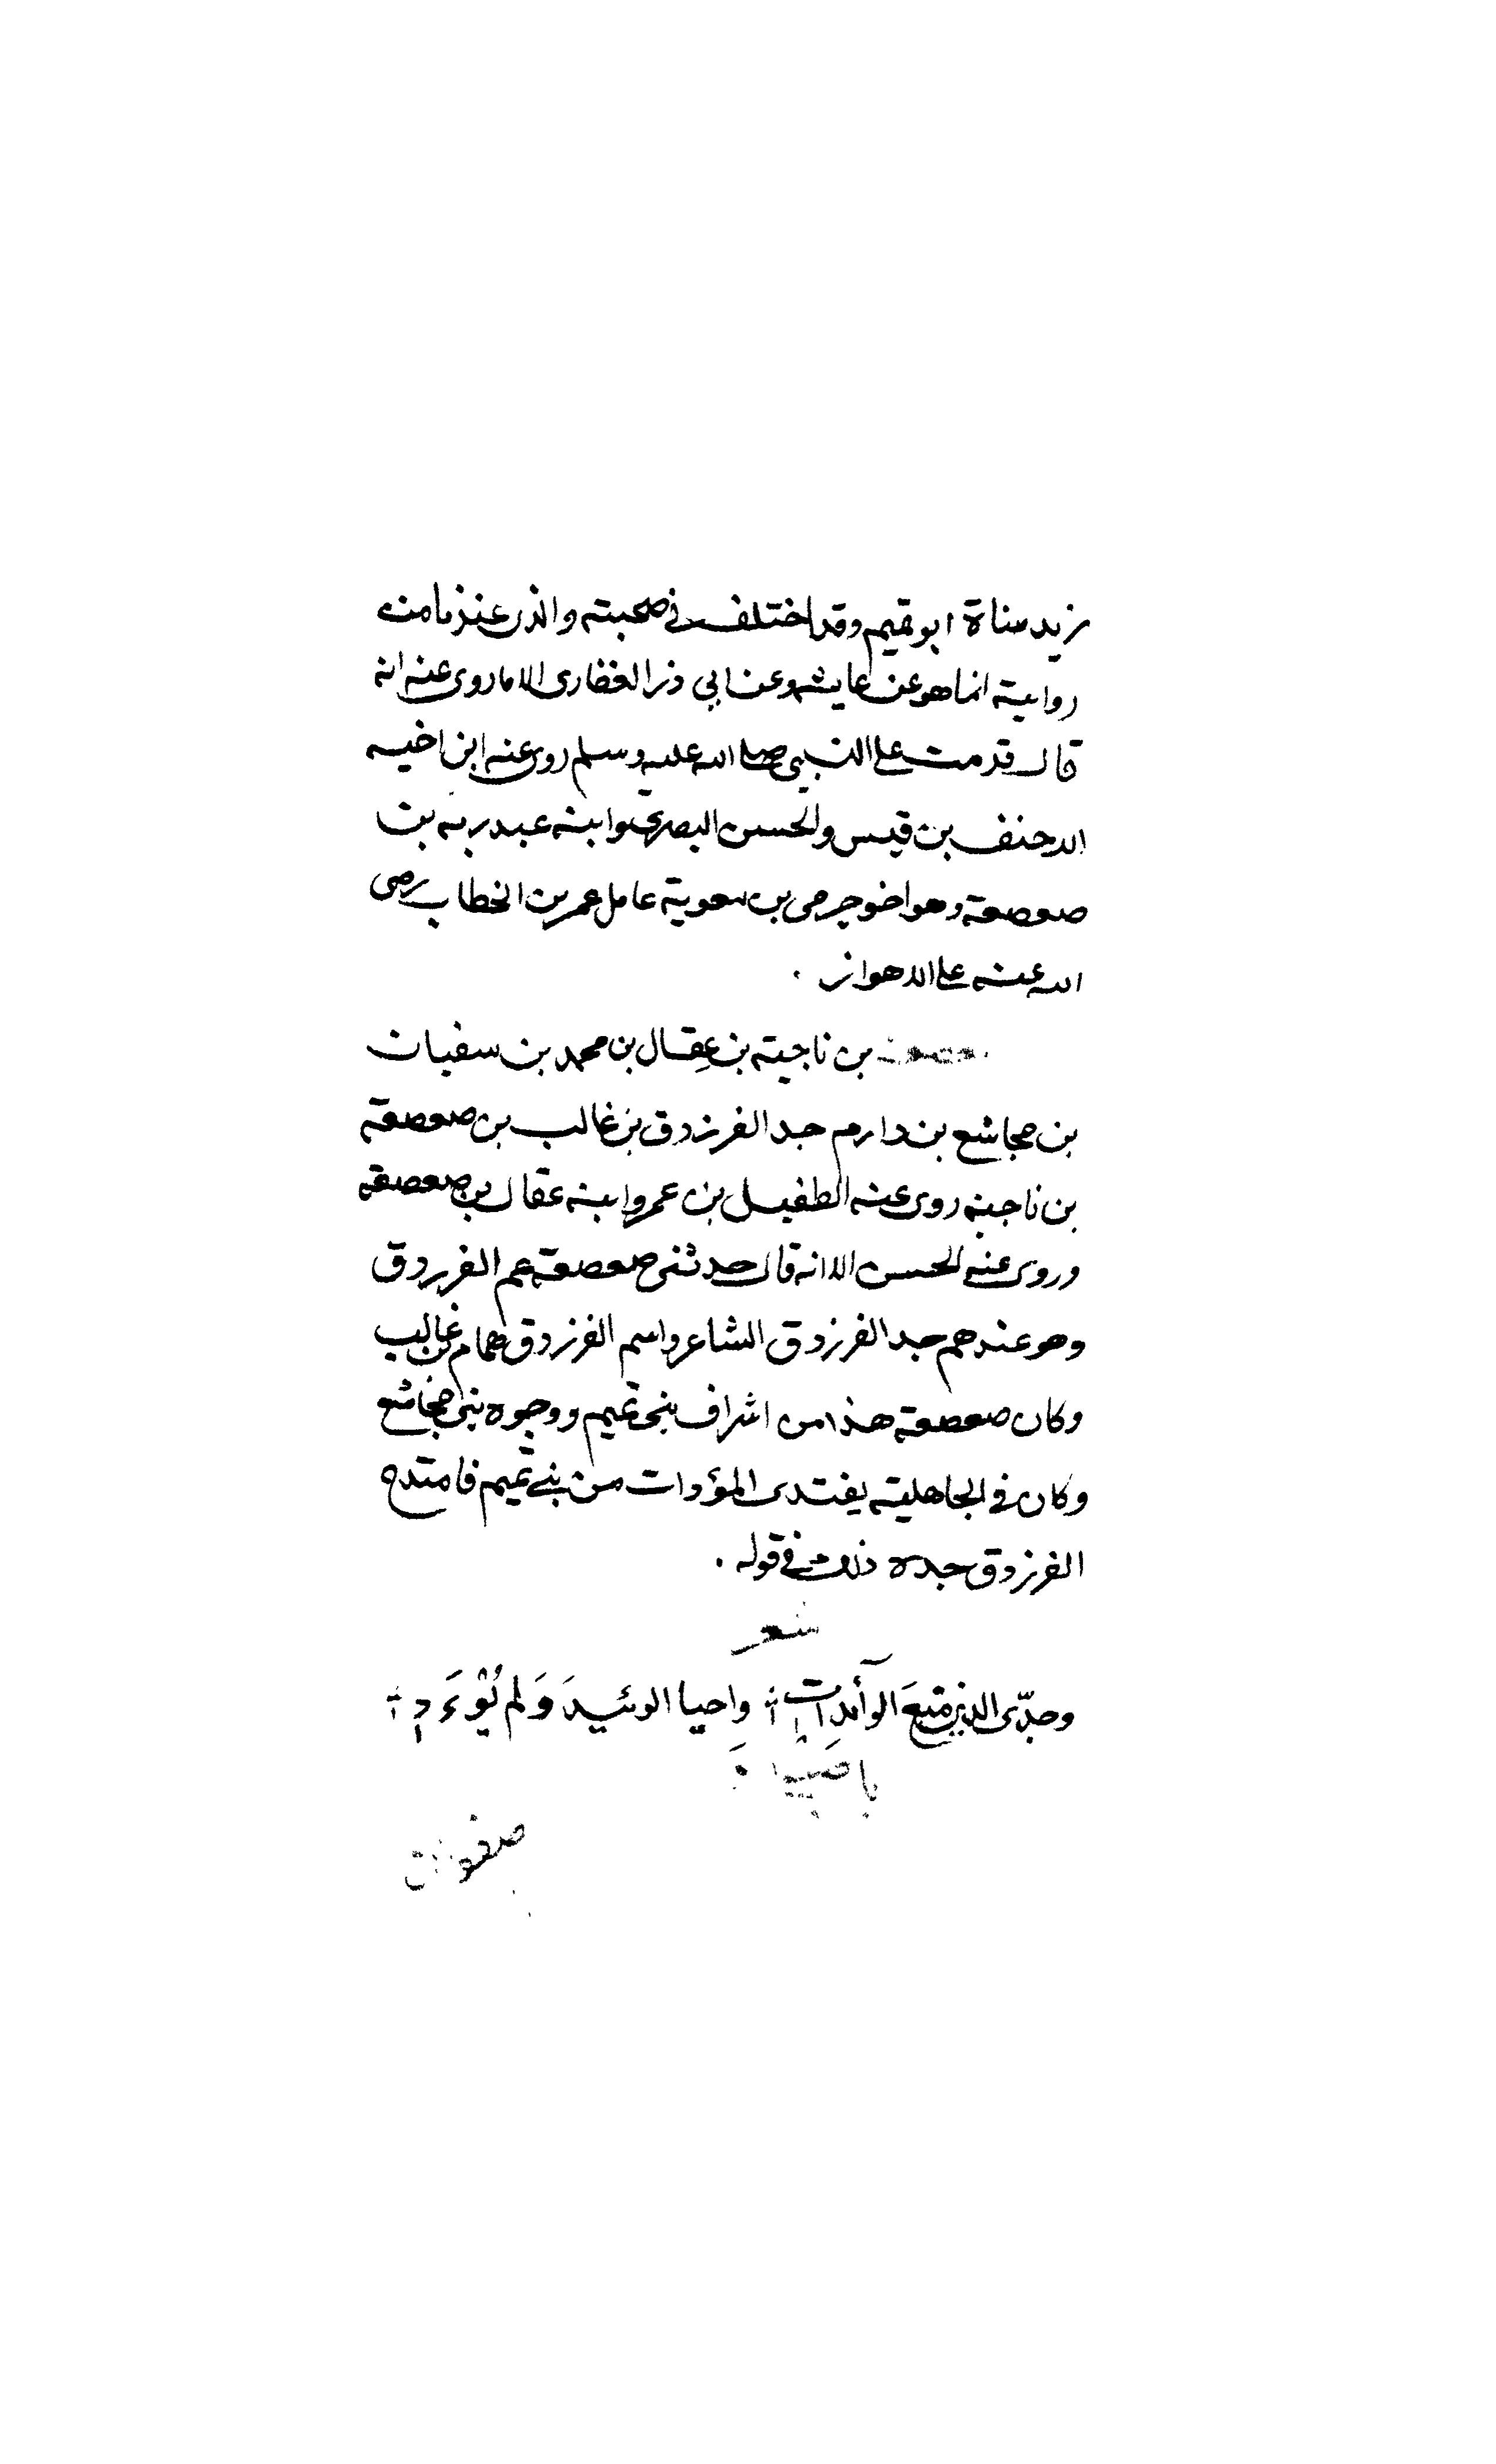 زيد مناة ابو تميم وقد اختلف في صحبته والذي عندنا من
روايته انما هو عن عايشه وعن ابي ذر الغفارى الا ما روى عنه انه
قال قدمت على النبي صلى الله عليه وسلم روى عنه ابن اخيه
الاحنف بن قيس والحسن البصري وابنه عبد ربه بن
صعصعة وهو اخو جرمي بن معوية عامل عمر بن الخطاب رضى
الله عنه على الاهواز .
صعصعة بن ناجية بن عِقال بن محمد بن سفيان
بن مجاشع بن دارم جد الفرزدق بن غالب بن صعصعة
بن ناجيه روى عنه الطفيل بن عمرو ابنه عقال بن صعصعة
وروى عنه الحسن الا انه قال حدثنى صعصعة عم الفرزدق
وهو عندهم جد الفرزدق الشاعر واسم الفرزدق همام بن غالب
وكان صعصعة هذا من اشراف بنى تميم ووجوه بنى مجاشع
وكان في الجاهلية يفتدى المؤدات من بني تميم فامتدح
الفرزدق جده ذلك في قوله .
شعر
وجدّى الذي منعَ الوآئدات واحيا الوئيدَ وَلم يُوْءَدِ
صفوان